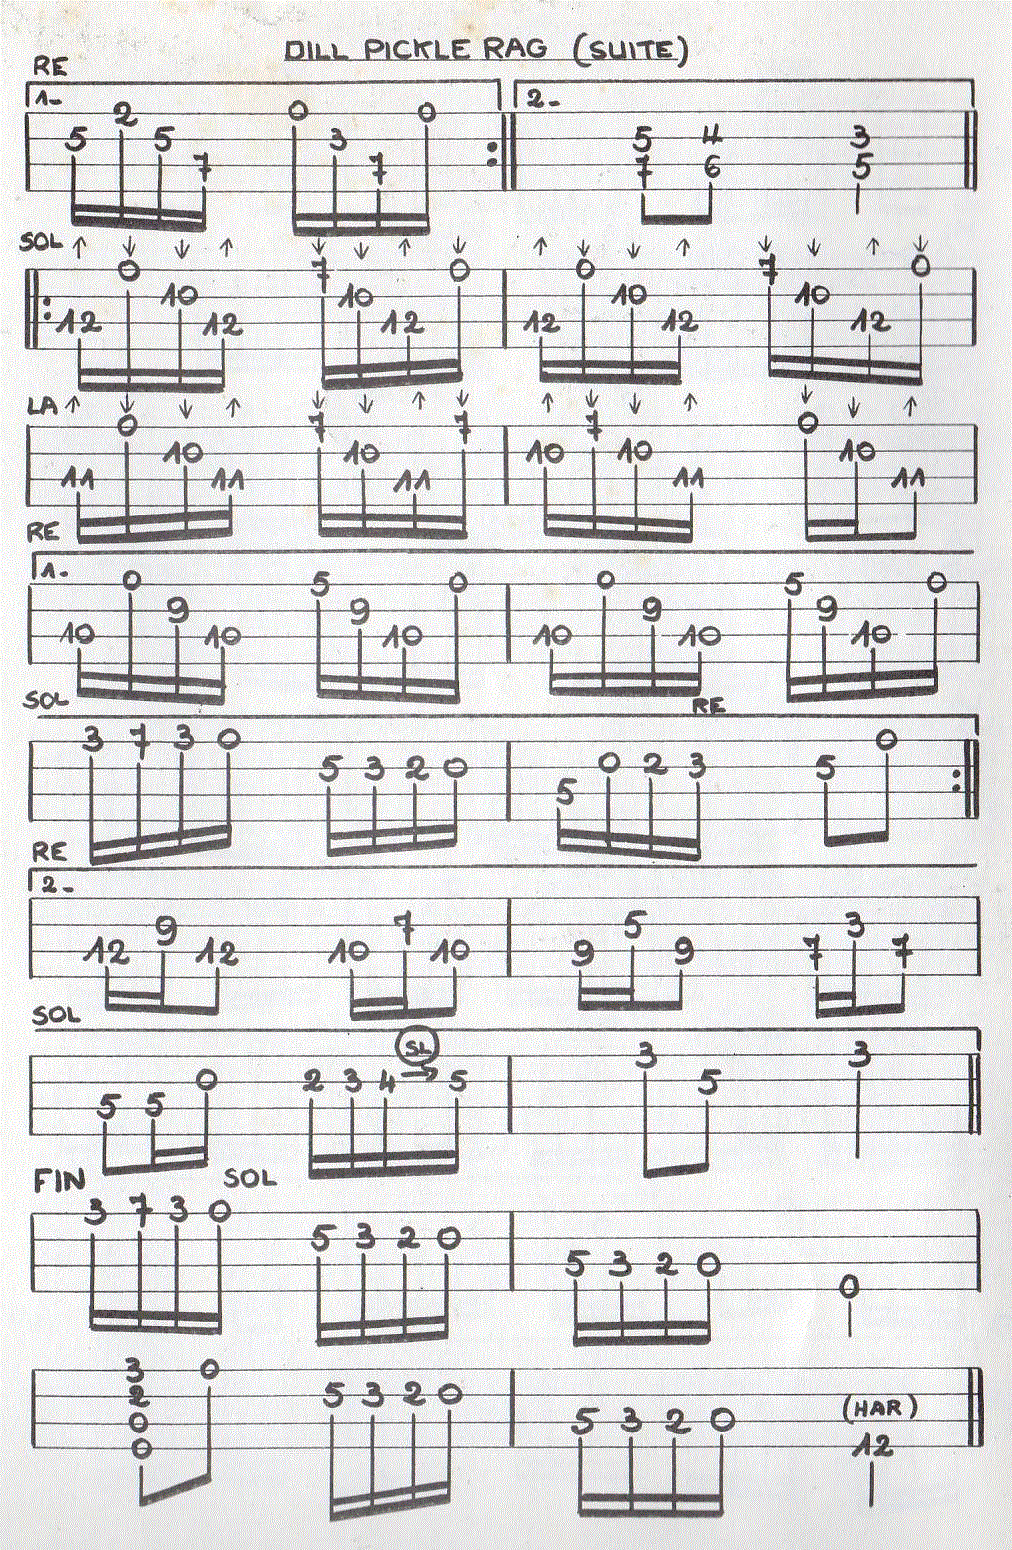 DILL PICKLE RAG (SUITE)
RE
1- 2-
2 0 0
5 5 3 5 4 3
7 7 7 6 5
SOL ↑ ↓ ↓ ↑ ↓ ↓ ↑ ↓ ↑ ↓ ↓ ↑ ↓ ↓ ↑ ↓
0 7 0 0 7 0
10 10 10 10
12 12 12 12 12 12
LA ↑ ↓ ↓ ↑ ↓ ↓ ↑ ↓ ↑ ↓ ↓ ↑ ↓ ↓ ↑
0 7 7 7 0
10 10 10 10 10
11 11 11 11 11
RE
1-
0 5 0 0 5 0
9 9 9 9
10 10 10 10 10 10
SOL RE
3 7 3 0 0
5 3 2 0 0 2 3 5
5
RE
2-
9 7 5 3
12 12 10 10 9 9 7 7
SOL
SL
3 3
0 2 3 4 → 5 5
5 5
FIN SOL
3 7 3 0
5 3 2 0
5 3 2 0
0
3 0
2 5 3 2 0
0 5 3 2 0 (HAR)
0 12